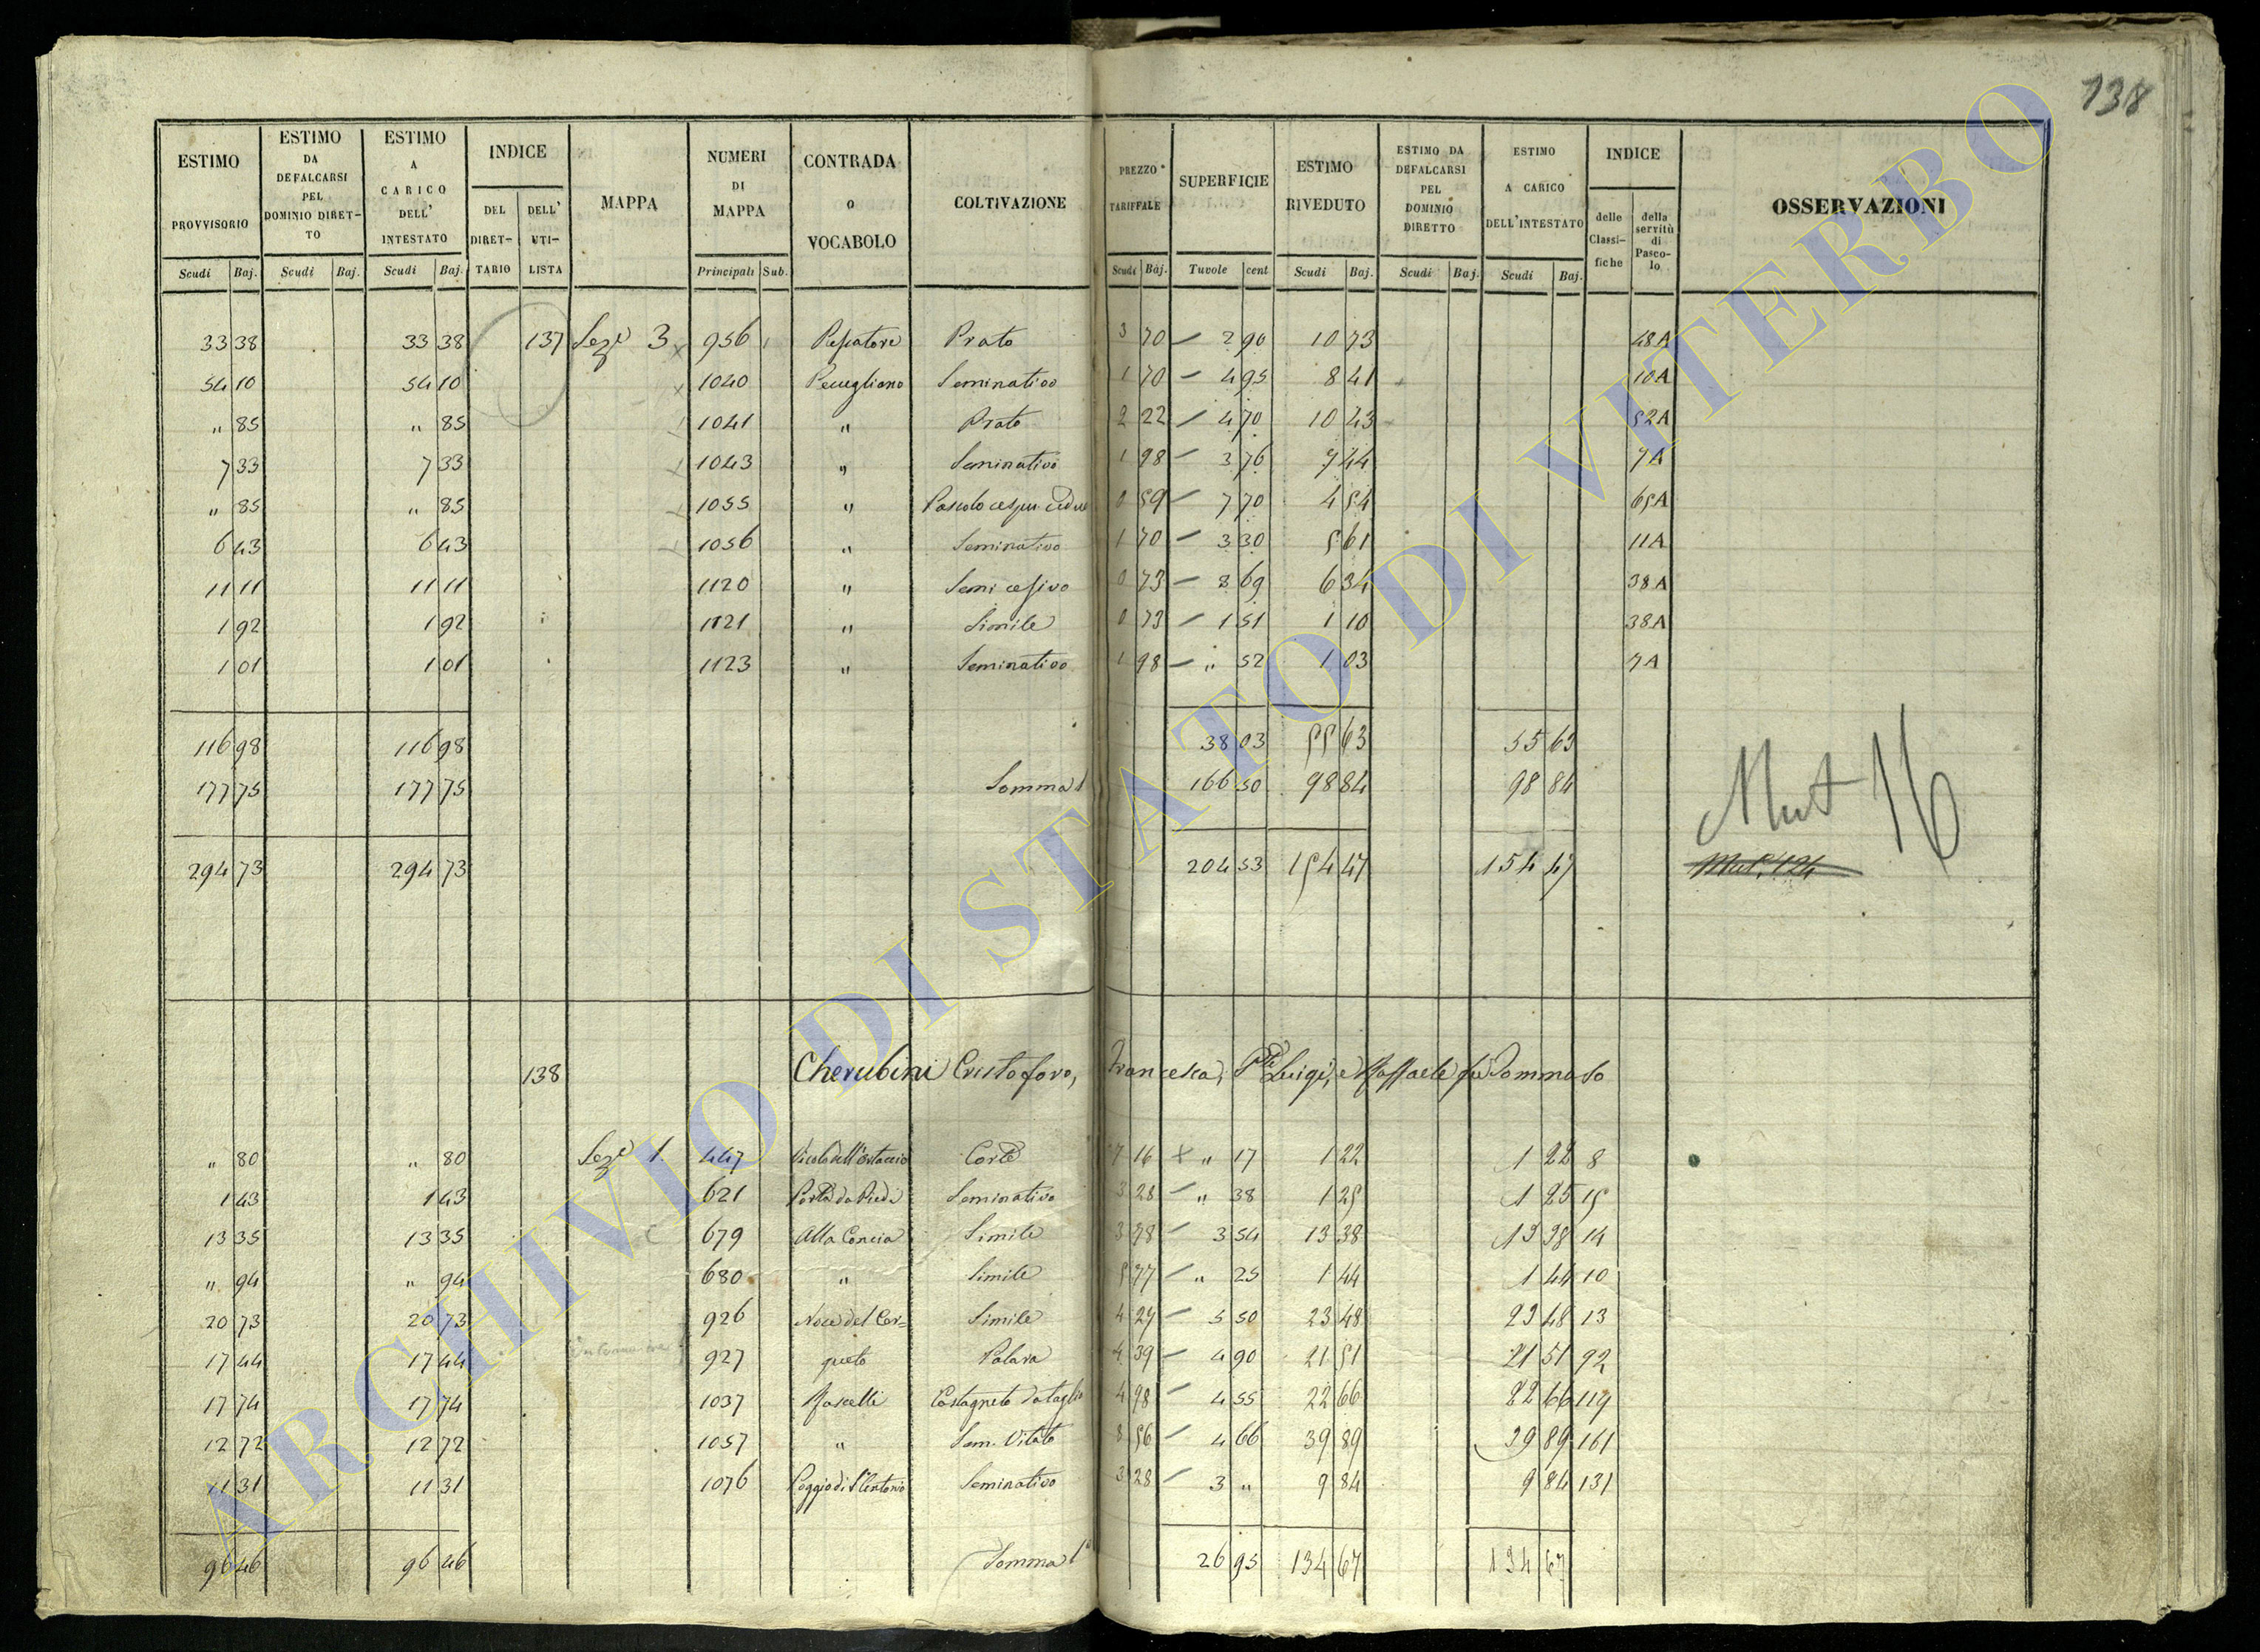 138
ESTIMO PROVVISORIO
ESTIMO DA DEFALCARSI PEL DOMINIO DIRET-TO
ESTIMO A CARICO DELL' INTESTATO
INDICE
DEL DIRET-TARIO
DELL' UTI-LISTA
MAPPA
NUMERI DI MAPPA
CONTRADA o VOCABOLO
COLTIVAZIONE
PREZZO TARIFFALE
SUPERFICIE
ESTIMO RIVEDUTO
ESTIMO DA DEFALCARSI PEL DOMINIO DIRETTO
ESTIMO A CARICO DELL'INTESTATO
INDICE
delle Classi-fiche
della servitù di Pasco-lo
OSSERVAZIONI
Scudi Baj. Scudi Baj. Scudi Baj. Principali Sub. Scudi Baj. Tavole cent Scudi Baj. Scudi Baj. Scudi Baj.
33 38 33 38 137 Sezе 3 956 Prato 3 70 2 90 10 73 48A
54 10 54 10 1040 Seminativo 1 70 4 95 8 41 10A
" 85 " 85 1041 " Prato 2 22 4 70 10 43 52A
7 33 7 33 1043 " Seminativo 1 98 3 76 7 44 7A
" 85 " 85 1055 " Pascolo cespu. Ceduo 0 59 7 70 4 54 65A
6 43 6 43 1056 " Seminativo 1 70 3 30 5 61 11A
11 11 11 11 1120 " Semi cesivo 0 73 8 69 6 34 38A
1 92 1 92 1121 " Simile 0 73 1 51 1 10 38A
1 01 1 01 1123 " Seminativo 1 98 " 52 1 03 7A
116 98 116 98 38 03 55 63 55 63
177 75 177 75 Somma 1 166 50 98 84 98 84
Mut 16
294 73 294 73 204 53 154 47 154 47
Mut. 124
138 Cherubini Cristoforo, Francesca, Luigi, e Raffaele fu Tommaso
" 80 " 80 Seze 1 447 Corte 7 16 " 17 1 22 1 22 8
1 43 1 43 621 Porta da Piedi Seminativo 3 28 " 38 1 25 1 25 15
13 35 13 35 679 Alla Concia Simile 3 78 3 54 13 38 13 38 14
" 94 " 94 680 " Simile 5 77 " 25 1 44 1 44 10
20 73 20 73 926 Noce del Cer= Simile 4 27 5 50 23 48 23 48 13
17 44 17 44 927 queto Palara 4 39 4 90 21 51 21 51 92
17 74 17 74 1037 Castagneto da taglio 4 98 4 55 22 66 22 66 119
12 72 12 72 1057 " Sem. Vitato 8 56 4 66 39 89 39 89 161
11 31 11 31 1076 Poggio di S. Antonio Seminativo 3 28 3 " 9 84 9 84 131
96 46 96 46 Somma 1a 26 95 134 67 134 67
ARCHIVIO DI STATO DI VITERBO